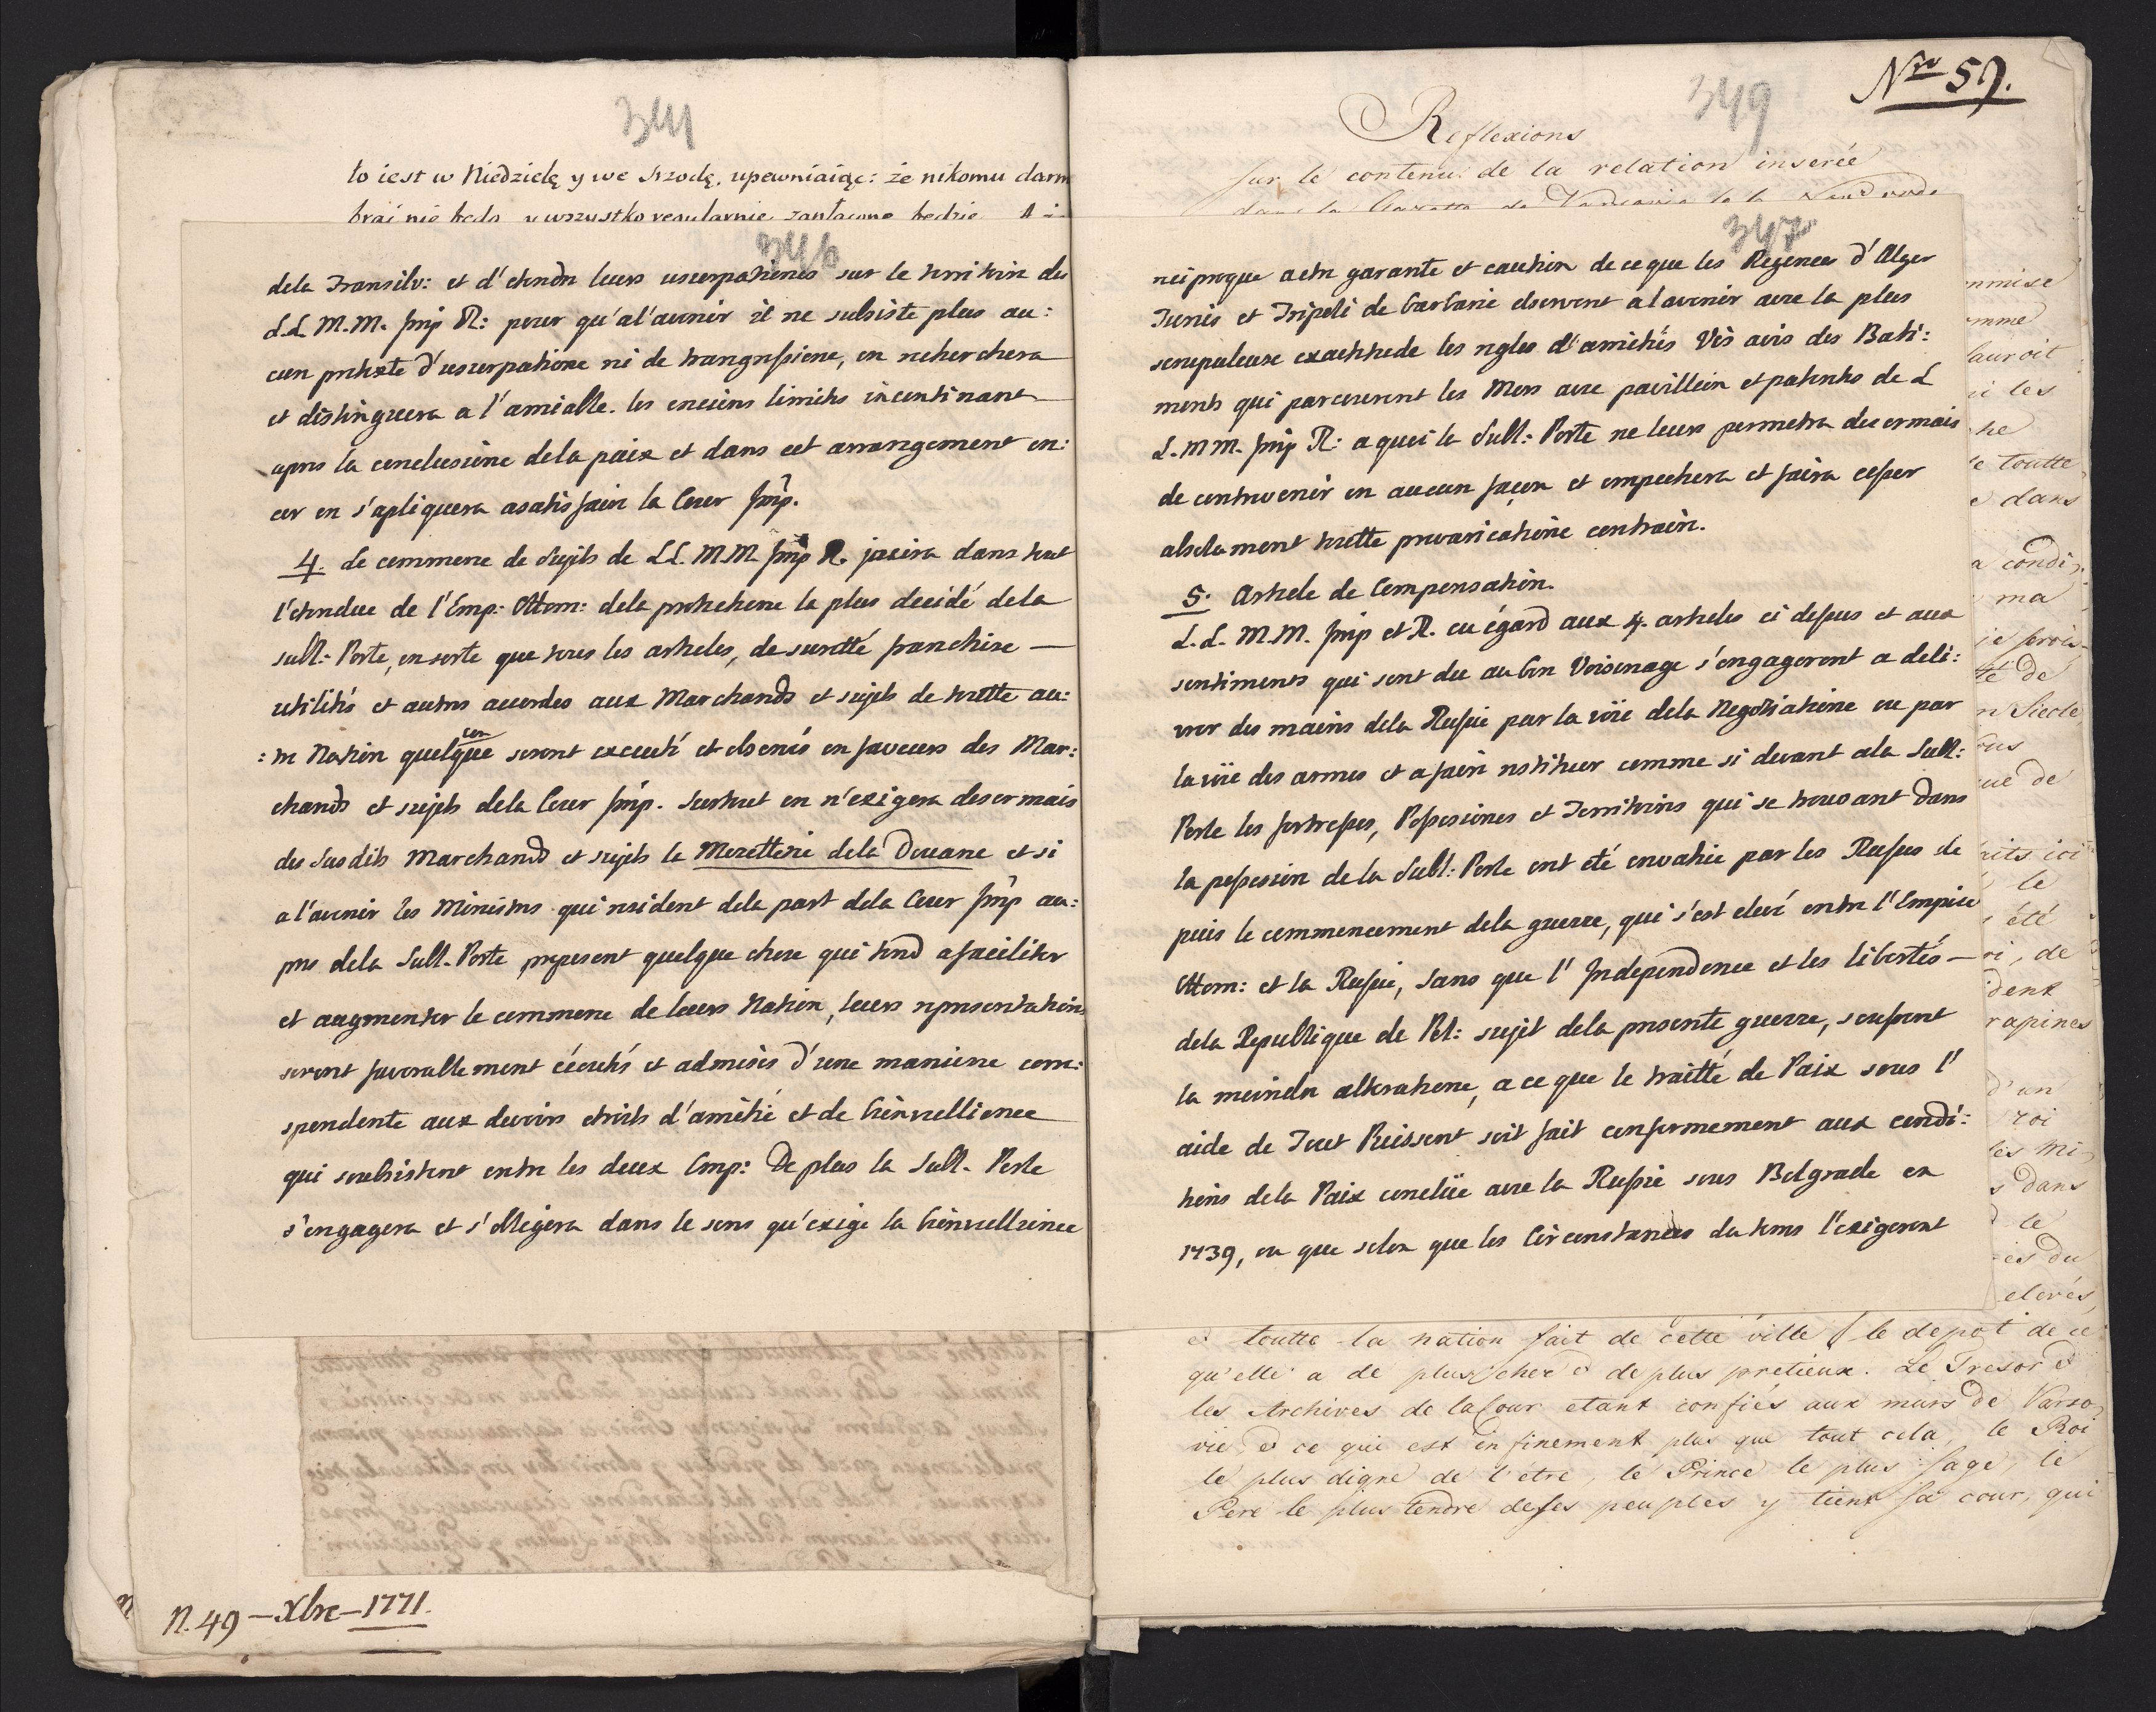 341
to iest w Niedzielę y we Srzodę, upewniaiąc: że nikomu darm
346
dela Transilv: et d'etendre leurs usurpationes sur le territoire des
L.L M.M. Imp R: pour qu'al'avenir il ne subsiste plus au:
cun pretexte d'usurpatione ni de transgressione, on recherchera
et distinguera a l'amiable. les enciens limites incontinant
apres la conclusione dela paix et dans cet arrangement en:
cor on s'apliquera asatisfaire la Cour Imp.
4. Le commerce de Sujets de LL. M.M. Imp R. jouira dans tout
l'etendue de l'Emp: Ottom: dela protectione la plus decidé dela
subl: Porte, ensorte que tous les articles, de suretté franchise —
utilités et autres accordes aux Marchands et sujets de toutte au:
:tre Nation quelque con seront executé et observés en faveurs des Mar:
chands et sujets dela Cour Imp. Surtout on n'exigera desormais
des Susdits Marchands et sujets la Mezetterie dela Douane et si
a l'avenir les Ministres qui resident dela part dela Cour Imp au:
pres dela Subl. Porte, proposent quelque chose qui tend a faciliter
et augmenter le commerce de leurs Nation, leurs representations
seront favorablement écoutés et admises d'une maniere corre:
spondente aux devoirs etroits d'amitié et de bienveillience
qui soubsistent entre les deux Emp: De plus la Subl. Porte
s'engagera et s'obligera dans le sens qu'exige la bienveillience
N. 49 – Xbre – 1771.
Nro 57.
349
Reflexions
sur le contenu de la relation inserée
347
reciproque a etre garante et caution de ce que les Regences d'Alger
Tunis et Tripoli de barbarie observent a l'avenir avec la plus
scrupuleuse exactitude les regles d'amitiés Vis avis des Bati:
ments qui parcourent les Mers avec pavillion et patentes de L
L. M M. Imp R: a quoi la Subl: Porte ne leurs permetra desormais
de contrevenir en aucun façon et empechera et faira cesser
absolument toutte prevaricatione contraire.
5. Article de Compensation.
L. L. M.M. Imp et R. eu égard aux 4. articles ci dessus et aux
sentiments qui sont du au bon Voisinage s'engageront a deli:
vrer des mains dela Russie par la voie dela Negotiatione ou par
la voie des armes et a faire restituer comme si devant ala Subl:
Porte les fortresses, Possessiones et Territoires qui se trouvant dans
la possession de la Subl: Porte ont eté envahie par les Russes de
puis le commencement dela guerre, qui s'est elevé entre l'Empire
Ottom: et la Russie, sans que l'Independence et les libertés —
dela Republique de Pol: sujet dela presente guerre, soufrent
la moindre alteratione, a ce que le traitté de Paix sous l'
aide de Tout Puissent soit fait conformement aux condi:
tions dela Paix concluë avec la Russie sous Belgrade en
1739, ou que selon que les Circonstances du tems l'exigeront
et toutte la nation fait de cette ville le depot de ce
qu'elle a de plus cher et de plus pretieux. Le Tresor et
les Archives de la Cour etant confiés aux murs de Varso,
vie, et ce qui est enfinement plus que tout cela, le Roi
le plus digne de l'être, le Prince le plus sage, le
Pere le plus tendre de ses peuples y tient sa cour, qui